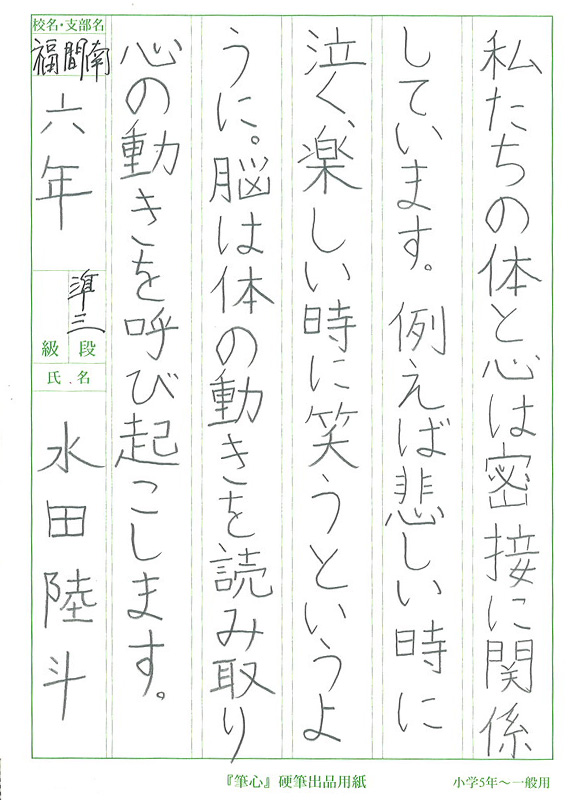 私たちの体と心は密接に関係
しています。例えば悲しい時に
泣く、楽しい時に笑うというよ
うに。脳は体の動きを読み取り
心の動きを呼び起こします。
校名・支部名
福間南
六年
準三
級 段
氏 名
水田陸斗
『筆心』硬筆出品用紙
小学5年～一般用